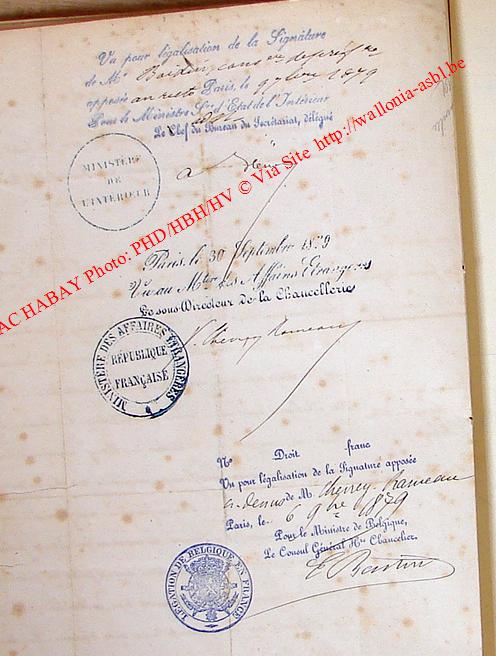 Vu pour légalisation de la Signature
de Mr
apposée au recto Paris, le 9 7bre 1879
Pour le Ministre Sre d'Etat de l'Intérieur
Le Chef du Bureau du Secrétariat, délégué
MINISTÈRE
DE
L'INTÉRIEUR
AC HABAY Photo: PHD/HBH/HV © Via Site http://wallonia-asbl.be
Paris, le 30 Septembre 1879
Vu au Mtère des Affaires Etrangères
Le sous-Directeur de la Chancellerie
MINISTÈRE DES AFFAIRES ÉTRANGÈRES
RÉPUBLIQUE
FRANÇAISE
No Droit franc
Vu pour légalisation de la Signature apposée
ci-dessus de M Chevrey-Rameau
Paris, le 6 9bre 1879
Pour le Ministre de Belgique,
Le Consul Général Hre Chancelier.
E Bastin
LÉGATION DE BELGIQUE EN FRANCE